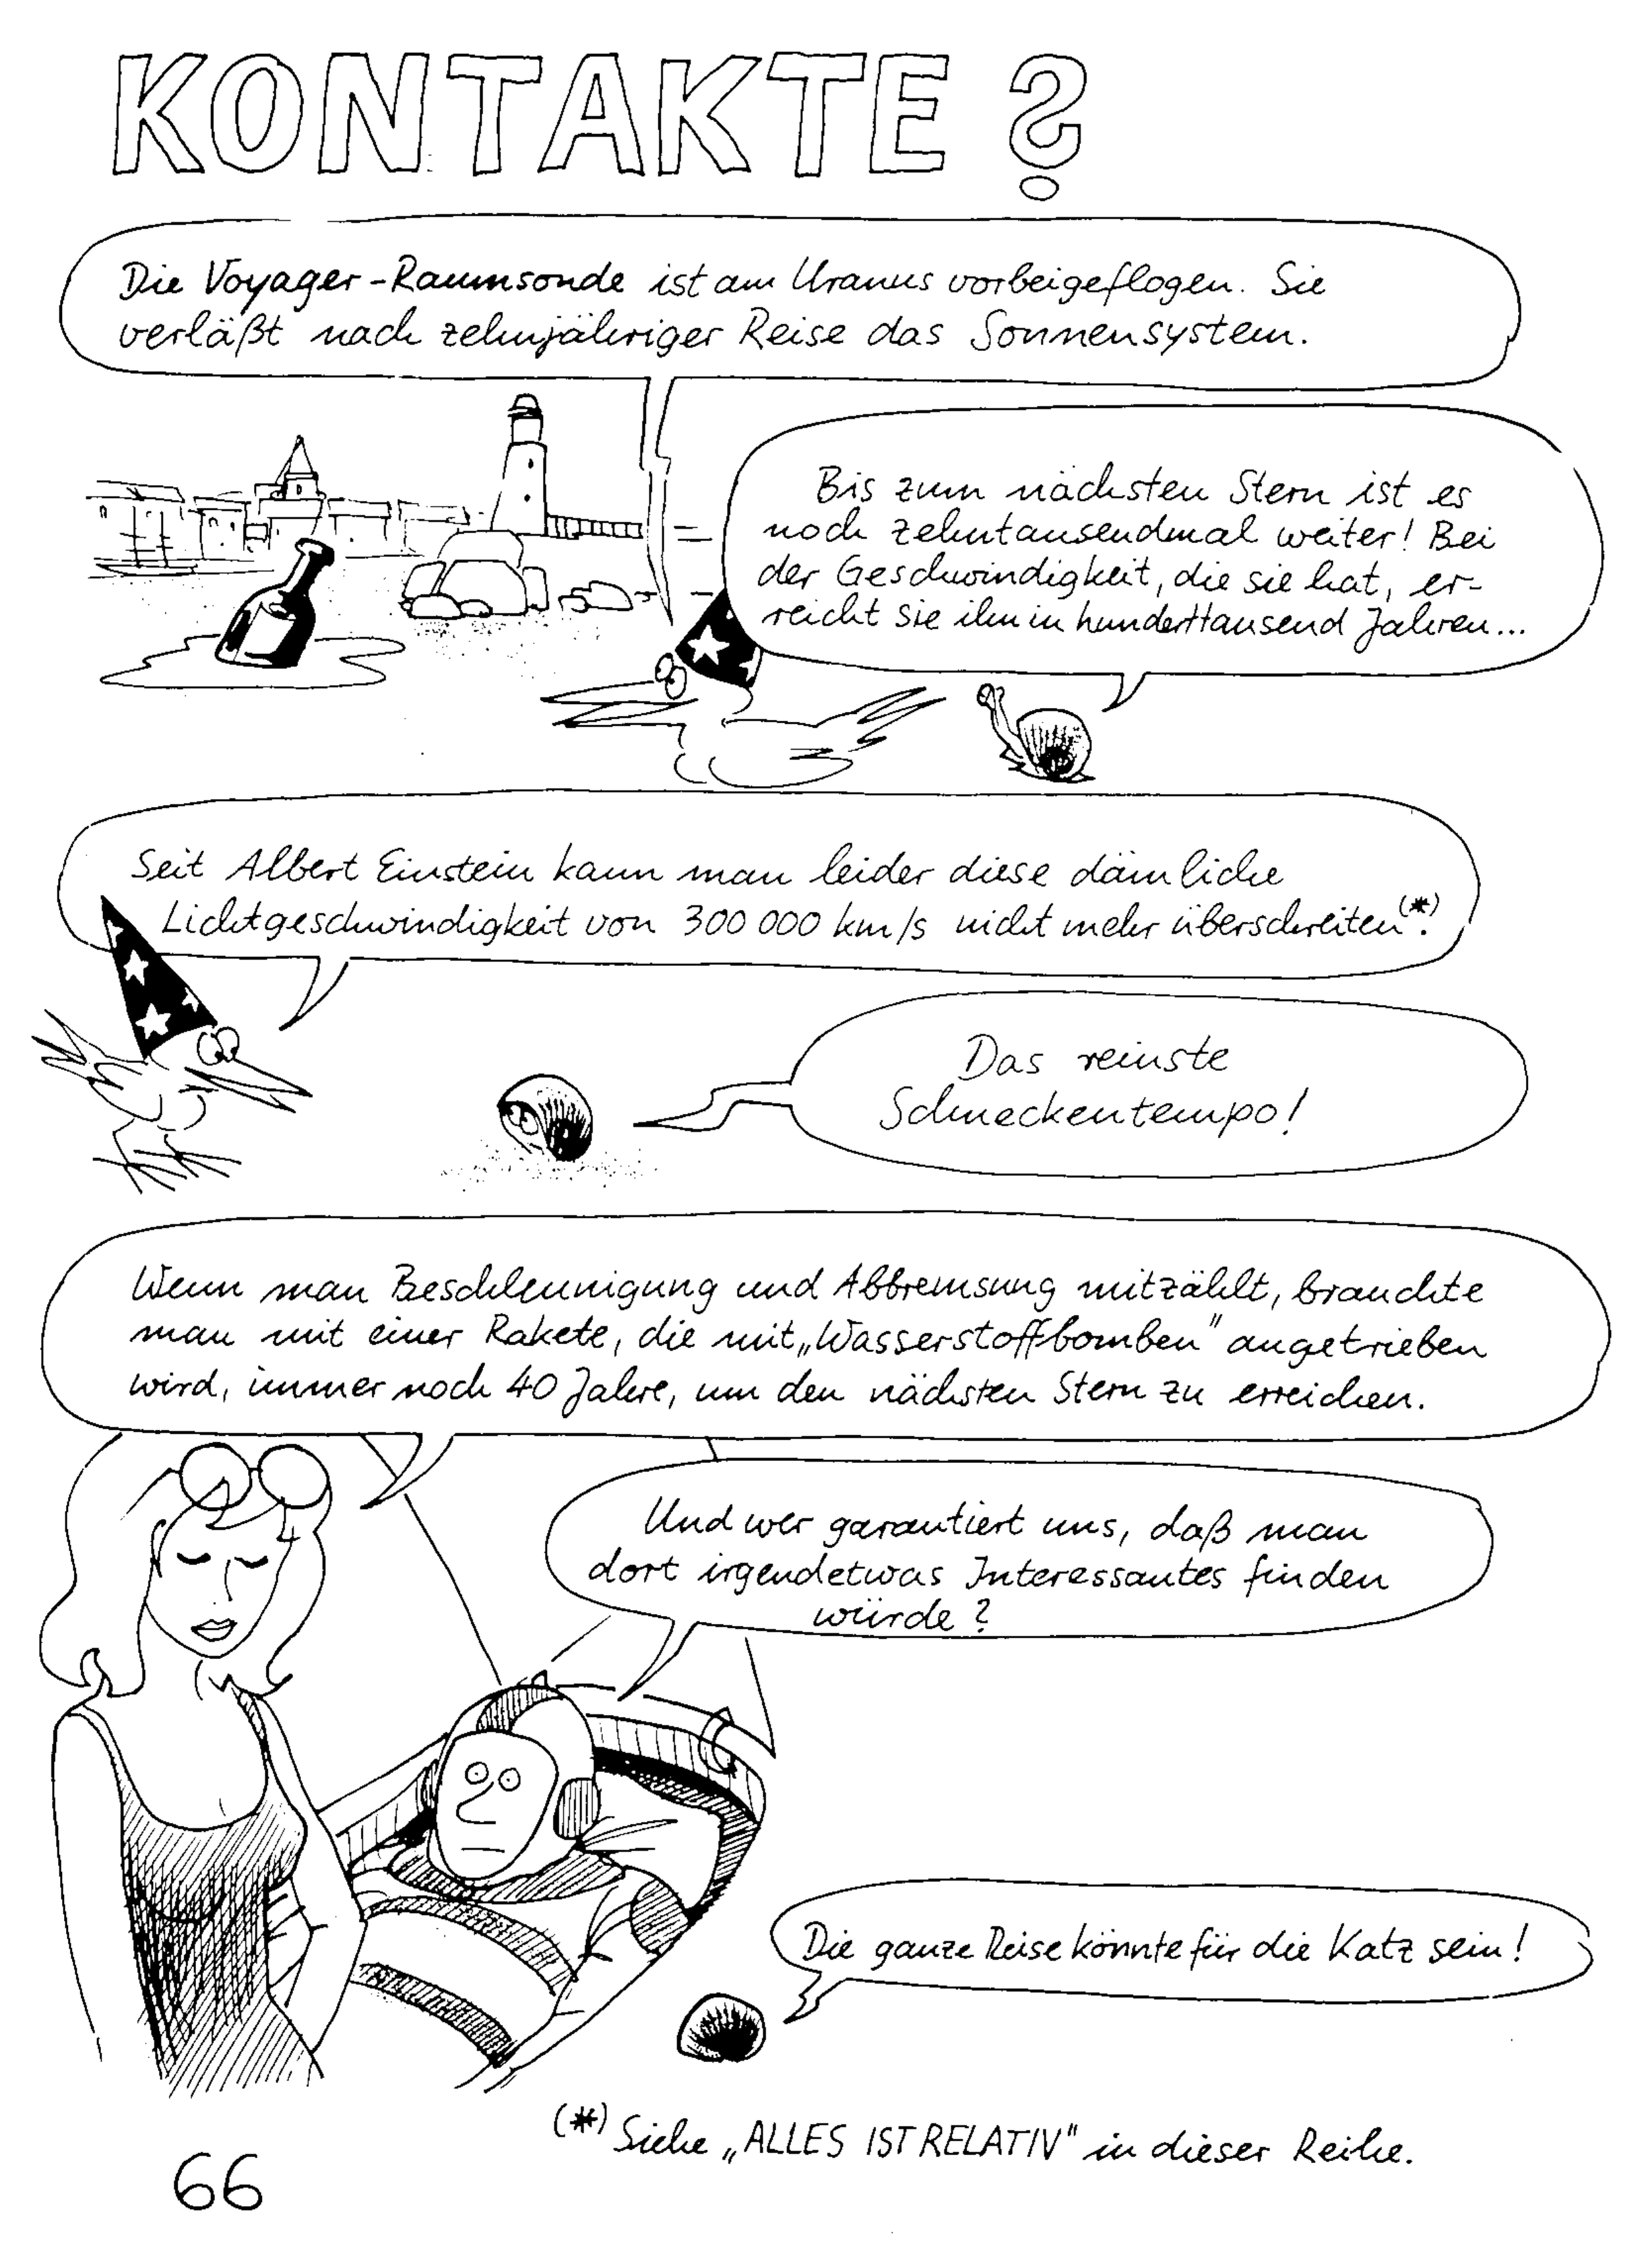 KONTAKTE ?
Die Voyager-Raumsonde ist am Uranus vorbeigeflogen. Sie
verläßt nach zehnjähriger Reise das Sonnensystem.
Bis zum nächsten Stern ist es
noch zehntausendmal weiter! Bei
der Geschwindigkeit, die sie hat, er-
reicht sie ihn in hunderttausend Jahren...
Seit Albert Einstein kann man leider diese dämliche
Lichtgeschwindigkeit von 300 000 km/s nicht mehr überschreiten(*).
Das reinste
Schneckentempo!
Wenn man Beschleunigung und Abbremsung mitzählt, brauchte
man mit einer Rakete, die mit „Wasserstoffbomben" angetrieben
wird, immer noch 40 Jahre, um den nächsten Stern zu erreichen.
Und wer garantiert uns, daß man
dort irgendetwas Interessantes finden
würde?
Die ganze Reise könnte für die Katz sein!
(*) Siehe „ALLES IST RELATIV" in dieser Reihe.
66